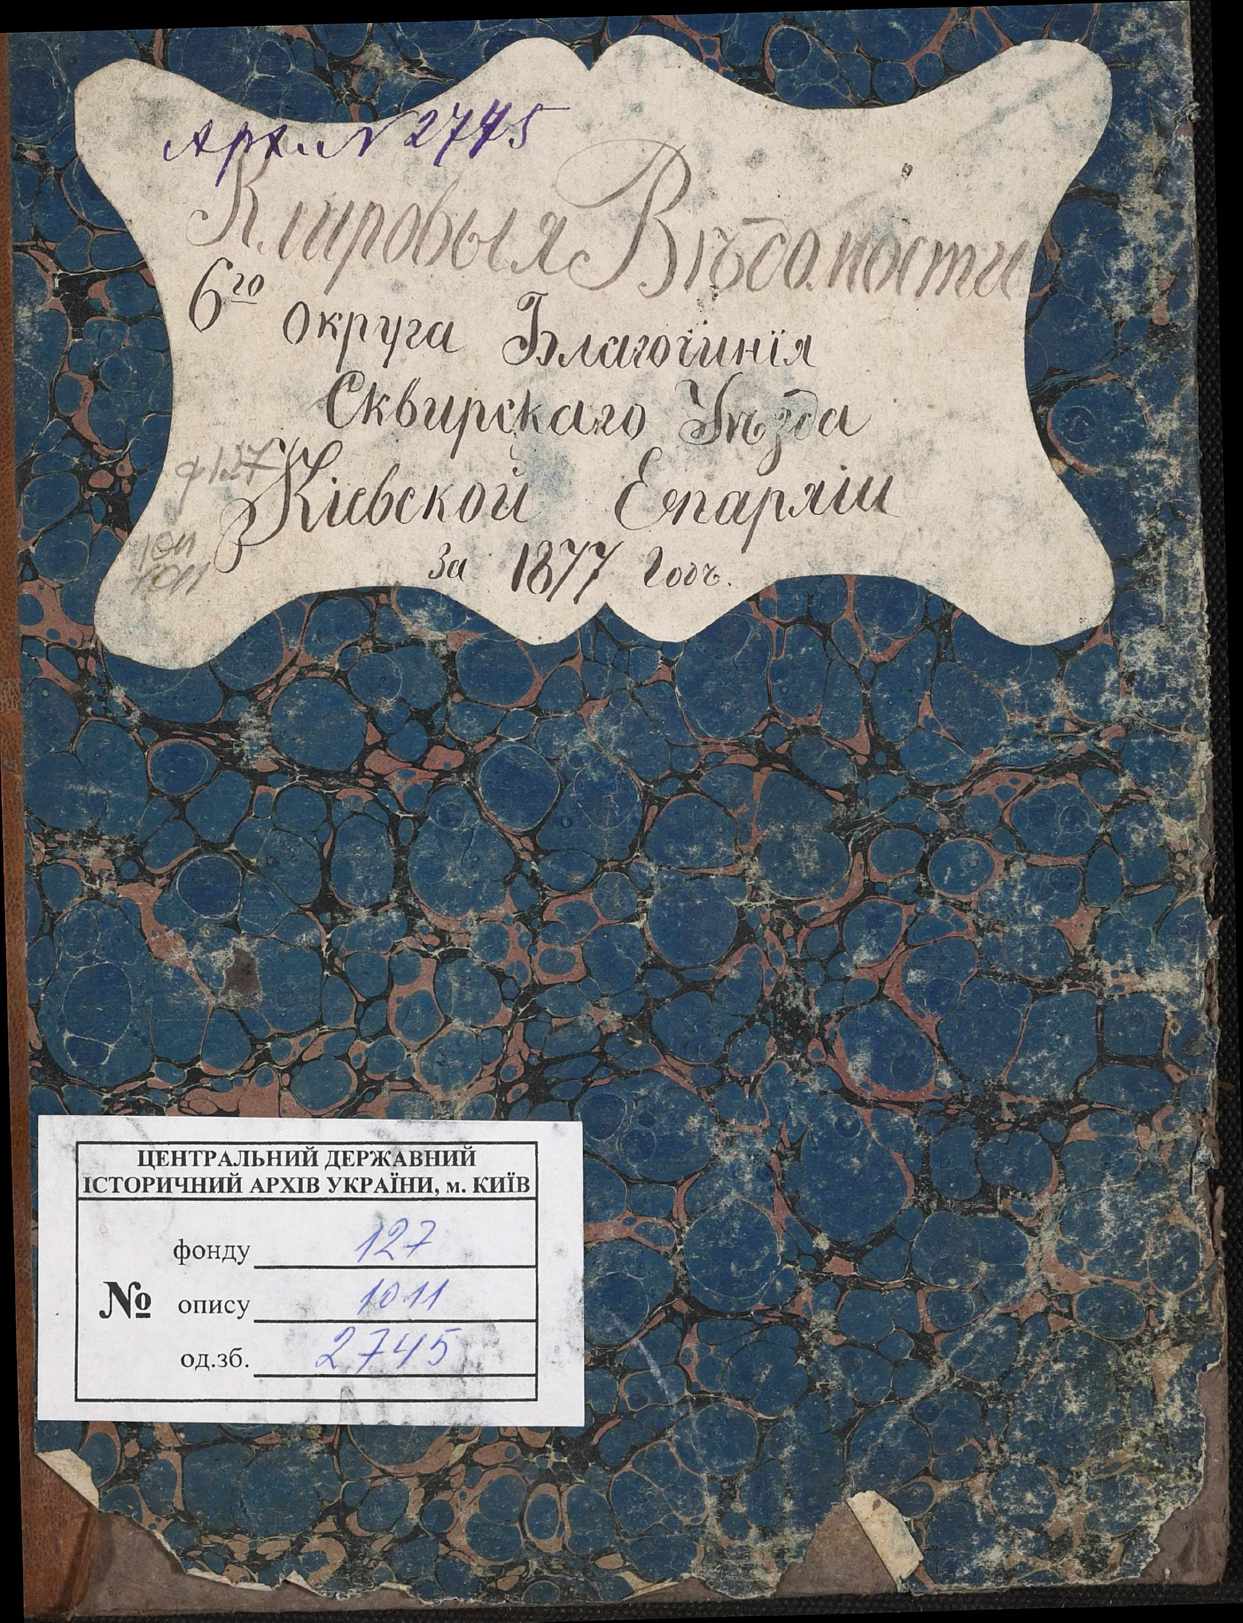 Арх. № 2745
Клировыя Вѣдомости
6го округа Благочинія
Сквирскаго Уѣзда
ф 127
Кіевской Епархіи
1011
за 1877 годъ.
ЦЕНТРАЛЬНИЙ ДЕРЖАВНИЙ
ІСТОРИЧНИЙ АРХІВ УКРАЇНИ, м. КИЇВ
фонду 127
№ опису 1011
од.зб. 2745